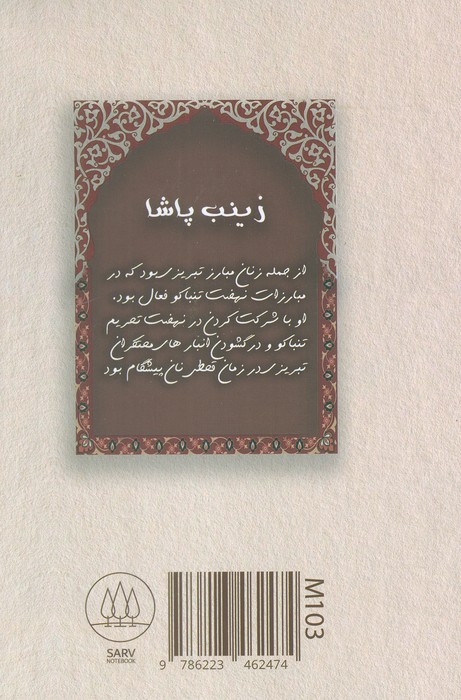 زینب پاشا
از جمله زنان مبارز تبریزی بود که در
مبارزات نهضت تنباکو فعال بود.
او با شرکت کردن در نهضت تحریم
تنباکو و در گشودن انبار های محتکران
تبریزی در زمان قحطی نان پیشگام بود
SARV
NOTEBOOK
9 786223 462474
M103